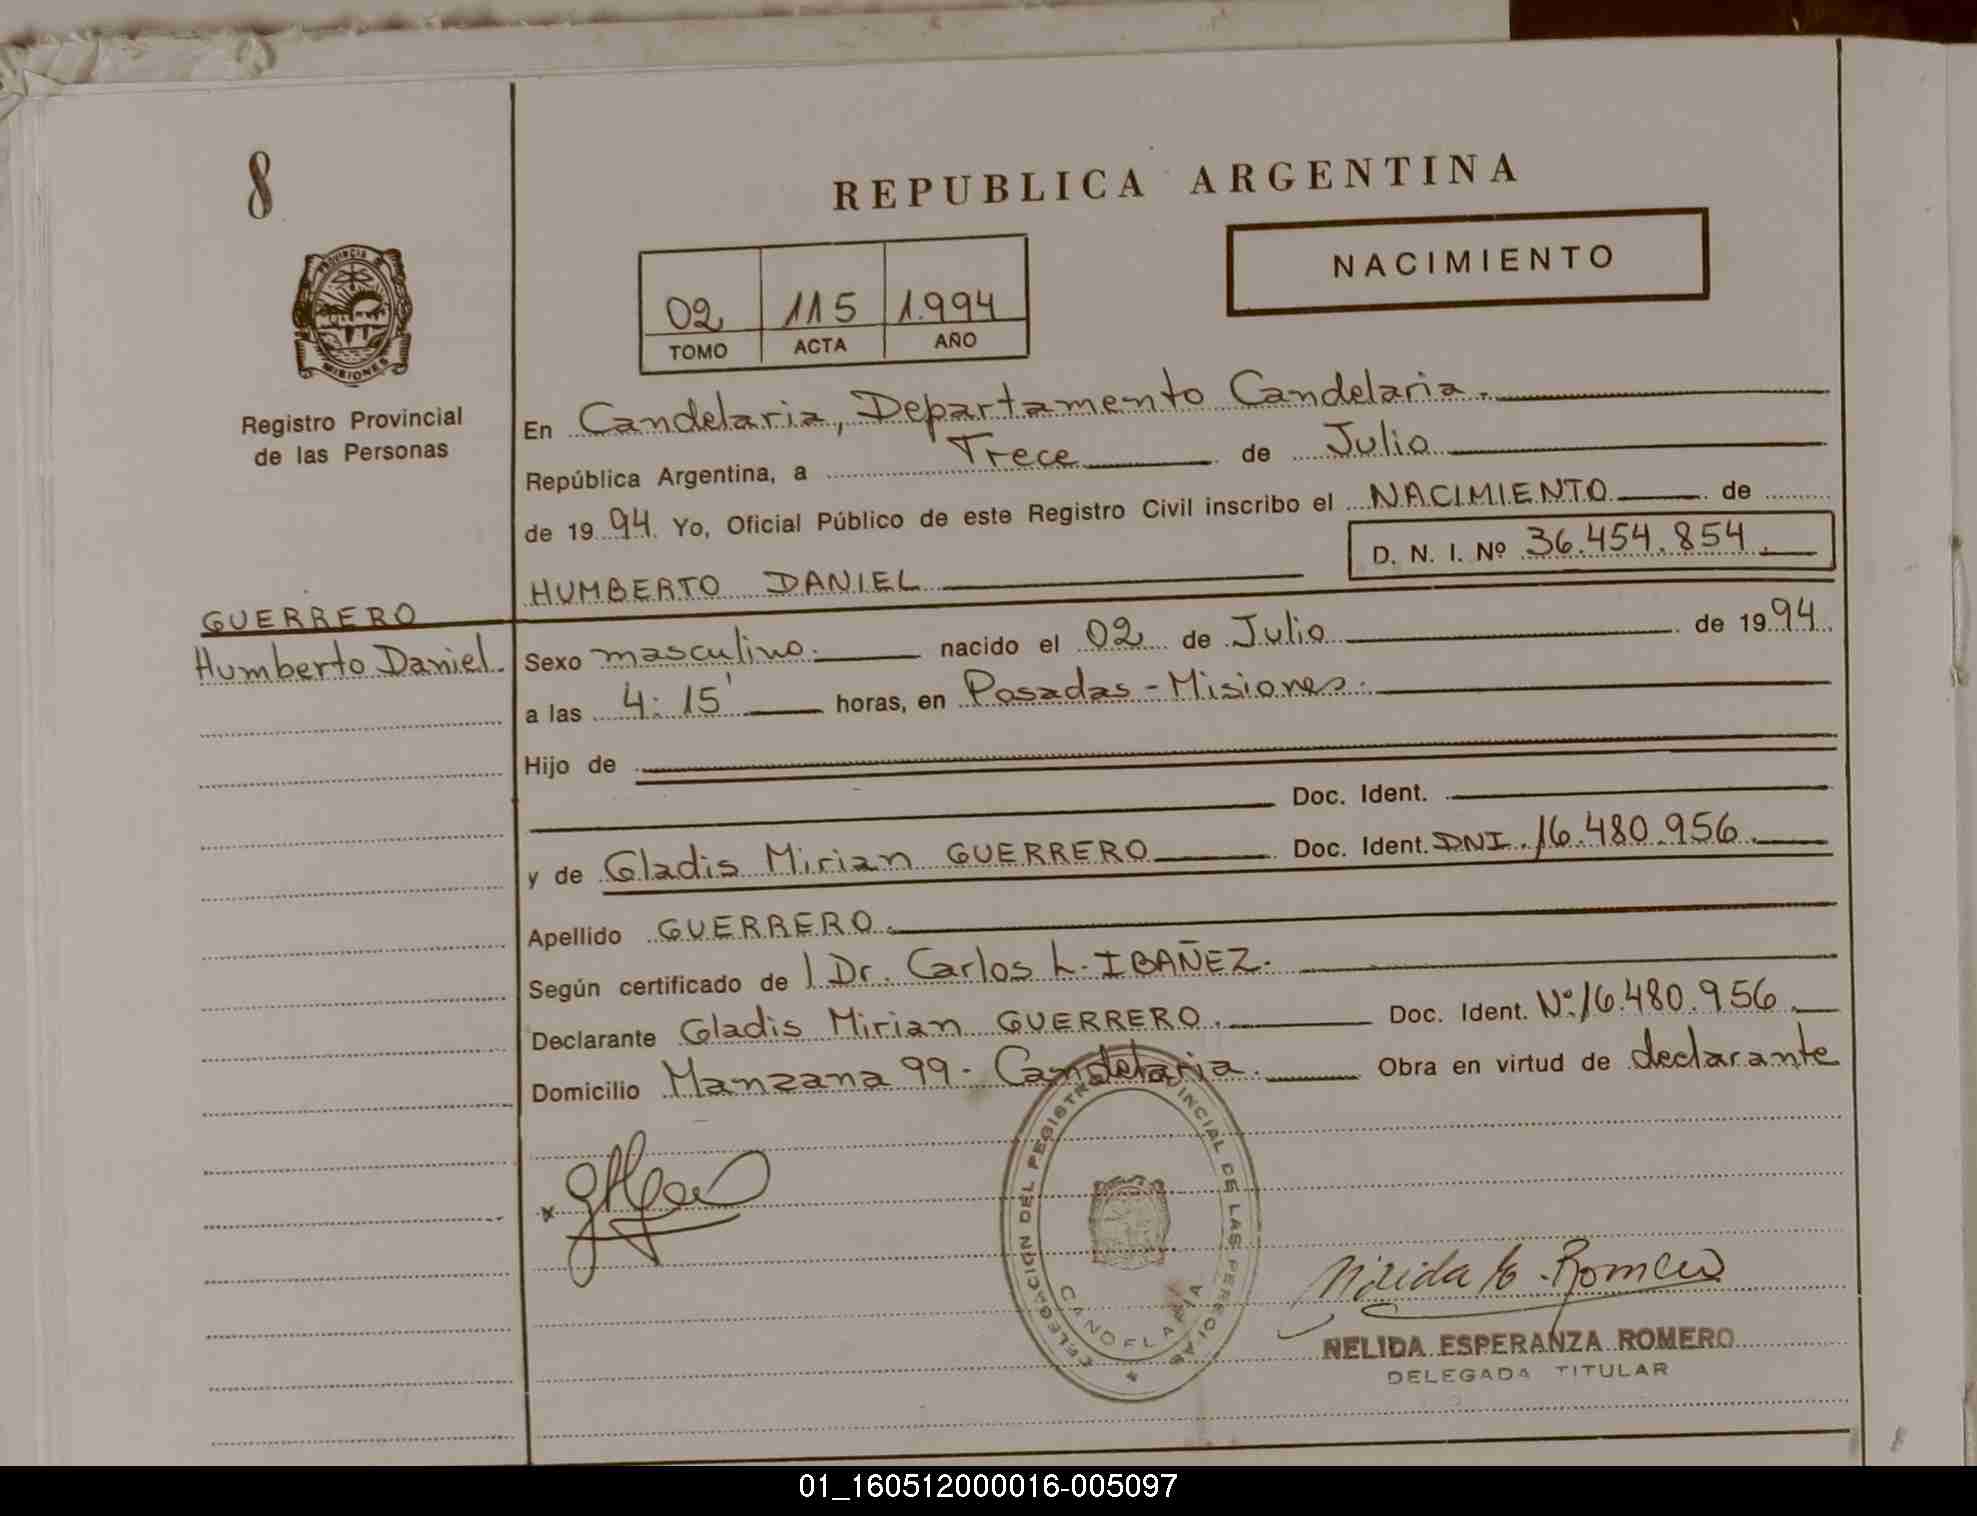 8
REPUBLICA ARGENTINA
NACIMIENTO
02 115 1.994
TOMO ACTA AÑO
PROVINCIA DE
MISIONES
Registro Provincial
de las Personas
En Candelaria, Departamento Candelaria.
República Argentina, a Trece de Julio
de 1994. Yo, Oficial Público de este Registro Civil inscribo el NACIMIENTO de
D. N. I. Nº 36.454.854.
HUMBERTO DANIEL
GUERRERO
Humberto Daniel.
Sexo masculino. nacido el 02 de Julio de 1994.
a las 4:15' horas, en Posadas - Misiones.
Hijo de
Doc. Ident.
y de Gladis Mirian GUERRERO Doc. Ident. DNI. 16.480.956.
Apellido GUERRERO.
Según certificado de l Dr. Carlos L. IBAÑEZ.
Declarante Gladis Mirian GUERRERO. Doc. Ident. Nº 16.480.956.
Domicilio Manzana 99 - Candelaria. Obra en virtud de declarante
DELEGACION DEL REGISTR INCIAL DE LAS PERSONAS
CANDELARIA
x
Nélida E. Romero
NELIDA ESPERANZA ROMERO
DELEGADA TITULAR
01_160512000016-005097